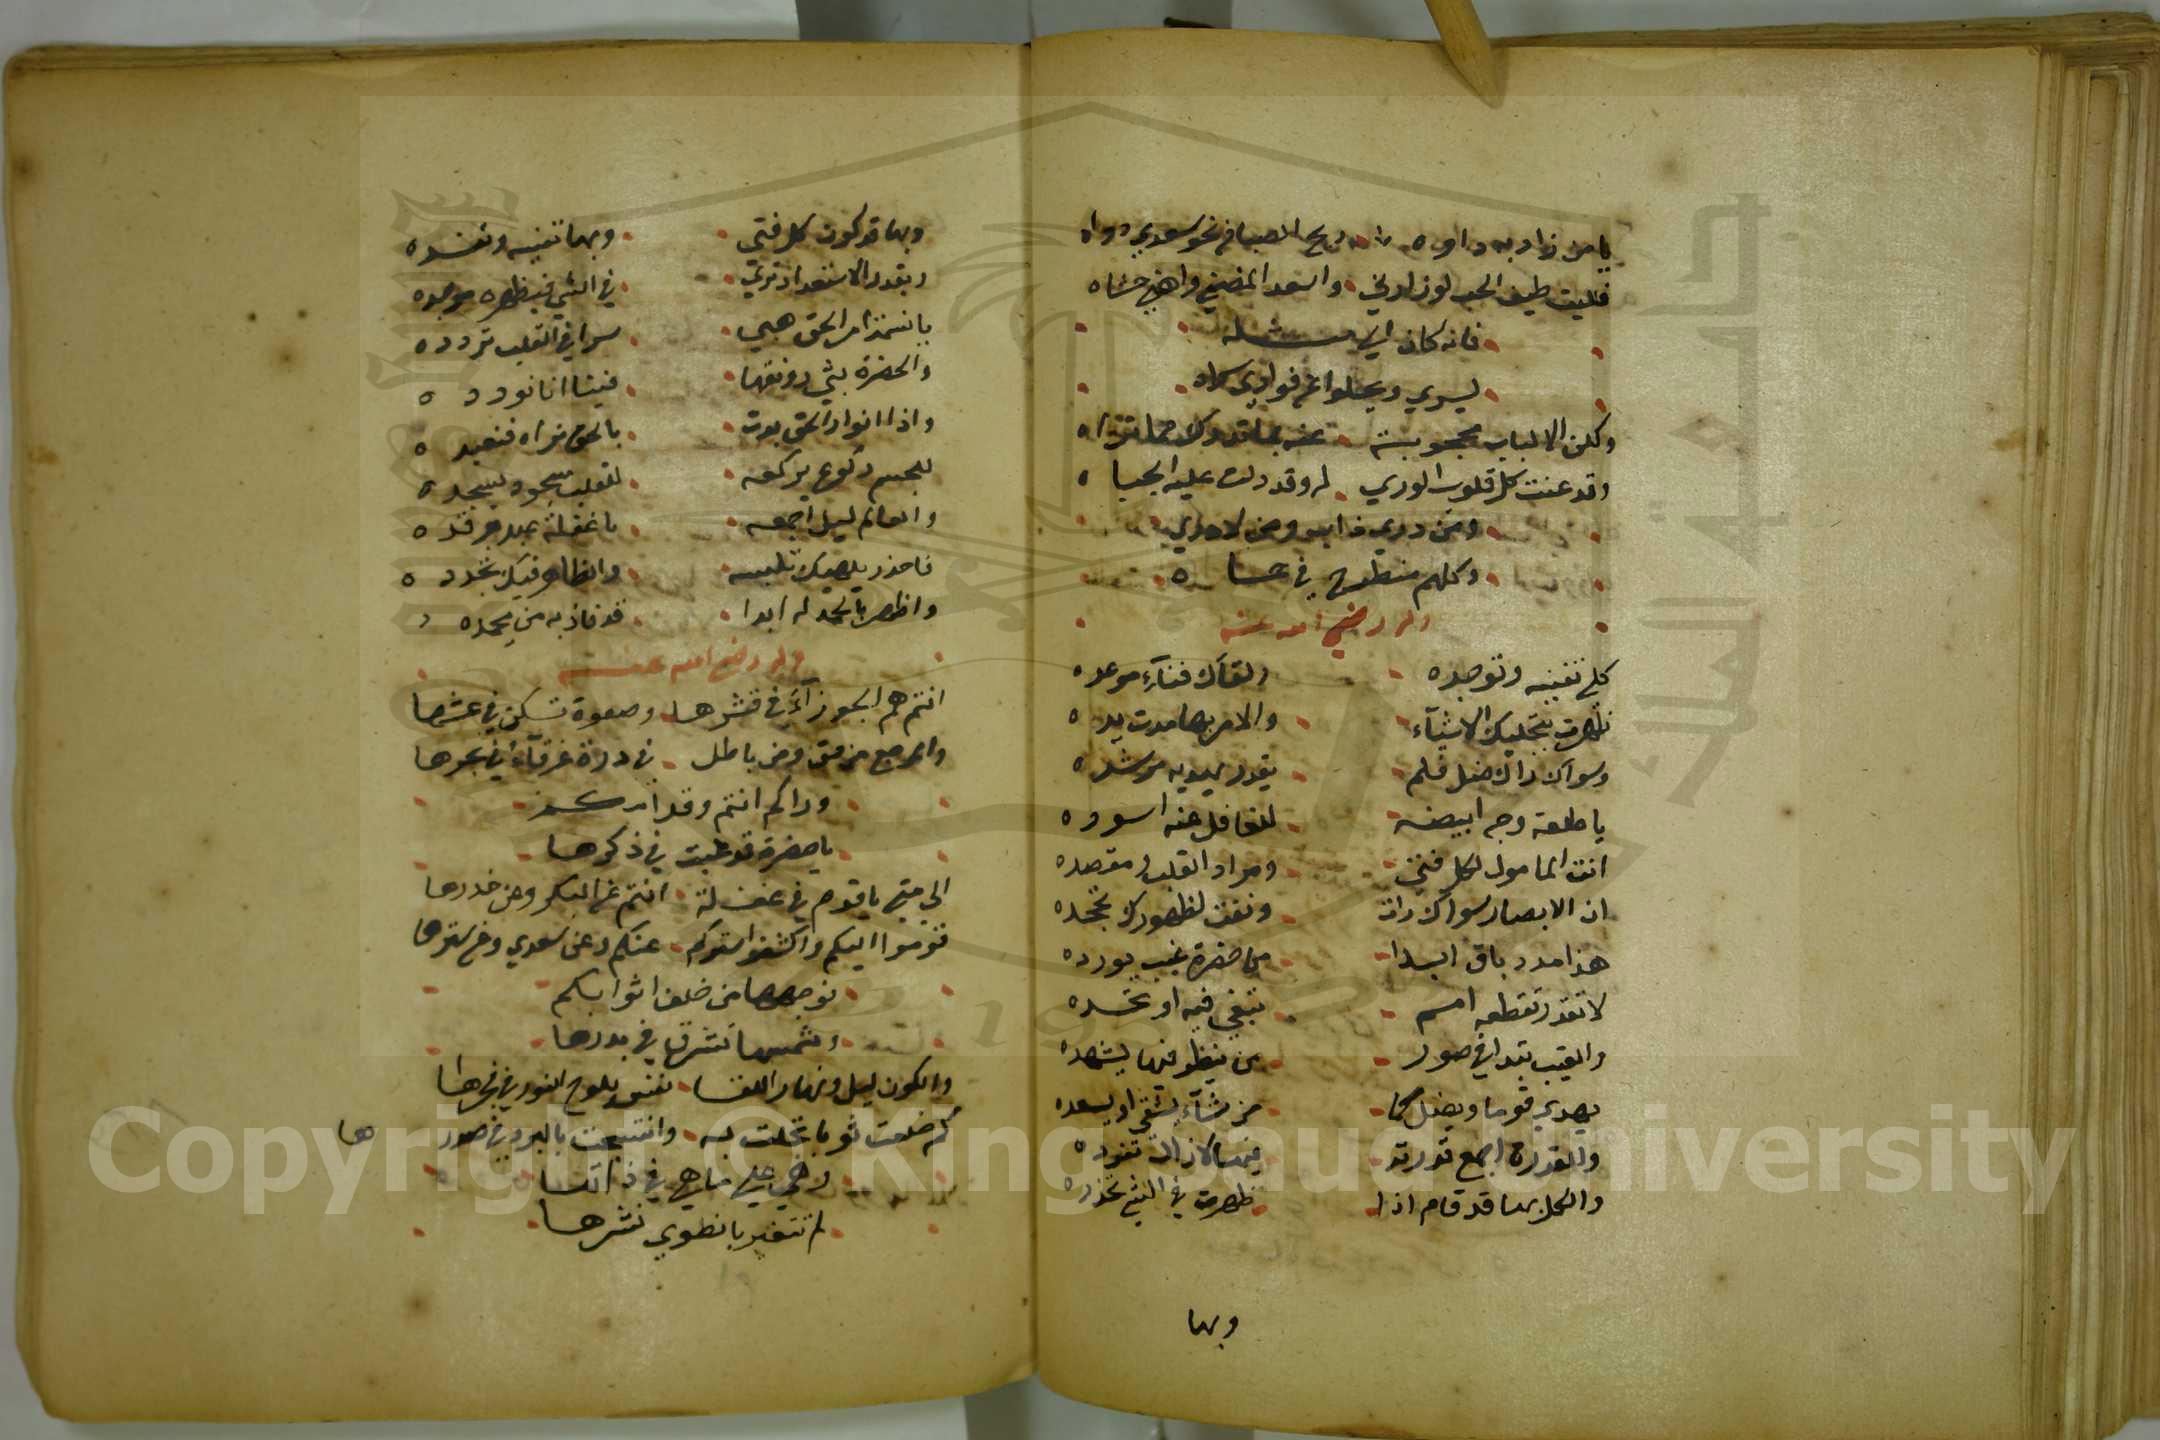 يا من زاد به داوه ريح الصبا في نحو سعدي دواه
فليت طيف الحب لو زارني والسعد المضني واهني حشاه
فانه كان الي مثله
يسري ويجلوا عن فوادي
ولكن الالباب محجوبة عنه بما قد ادركت مما تراه
وقد عنت كل قلوب الوري له وقد دلت عليه الجباه
ومن دري ذاب ومن لا دري
وكلهم منطرح في حماه
وله رضي الله عنه
كلي تفنيه وتوجده ولقاك فناء موعده
ظهرت بتجليك الاشياء والامر بها مدت يده
وسواك زال ضل فلم يقدر يهديه مرشده
يا طلعة وجه ابيضه للغافل عنه اسوده
انت المامول لكل فتي ومراد القلب ومقصده
ان الابصار سواك رات ونفت لظهورك تجحده
هذا مدد باق ابدا من حضرة غيب يورده
لا تقدر تقطعه امم تبغي فيه او تحسده
والغيب بتدا في صور من ينظر فيها يشهده
يهدي قوما ويضل كما من شاء يشقي او يسعده
والقدرة اجمع قدرته فينا لا زالت تفرده
والكل بها قد قام اذا ظهرت في الشي تحدده
وبها
وبها قد كون كل فتي وبها تفنيه وتنفده
وبقدر الاستعداد تري في الشي فيظهره موجده
يا نسمة امر الحق هبي سرا في القلب تردده
والحضرة يثني رونقها فينا انا نودده
واذا انوار الحق بدت بالحق نراه فنعبده
للجسم ركوع يركعه للقلب سجود يسجده
والعالم ليل اجمعه يا غفلة عبد يرقده
فاحذر يلهيك تلبسه والظاهر فيك تجدده
واظهر بالحمد له ابدا قد فاز به من يحمده
وله رضي الله عنه
انتم هم الجوزاء في قشرها وصعوة تسكن في عشها
والمرجع من حق ومن باطل في درة غرقاء في بحرها
وراكم انتم وقد امركم
يا حضرة قد غبت في ذكرها
الي متي يا قوم في غفلة انتم عن البكر ومن خدرها
قوموا اليكم واكشفوا ستركم عنكم وعن سعدي وعن سترها
نوجهها من خلف اثوابكم
وشمسها تشرق في بدرها
والكون ليل ونهار اللقا نفس يلوح النور في فجرها
كم خلعت ثوبا تجلت به وانتسجت بالبرد في صورها
وهي علي ما هي في ذاتها
لم تتغير بانطوي نشرها
Copyright © King Saud University